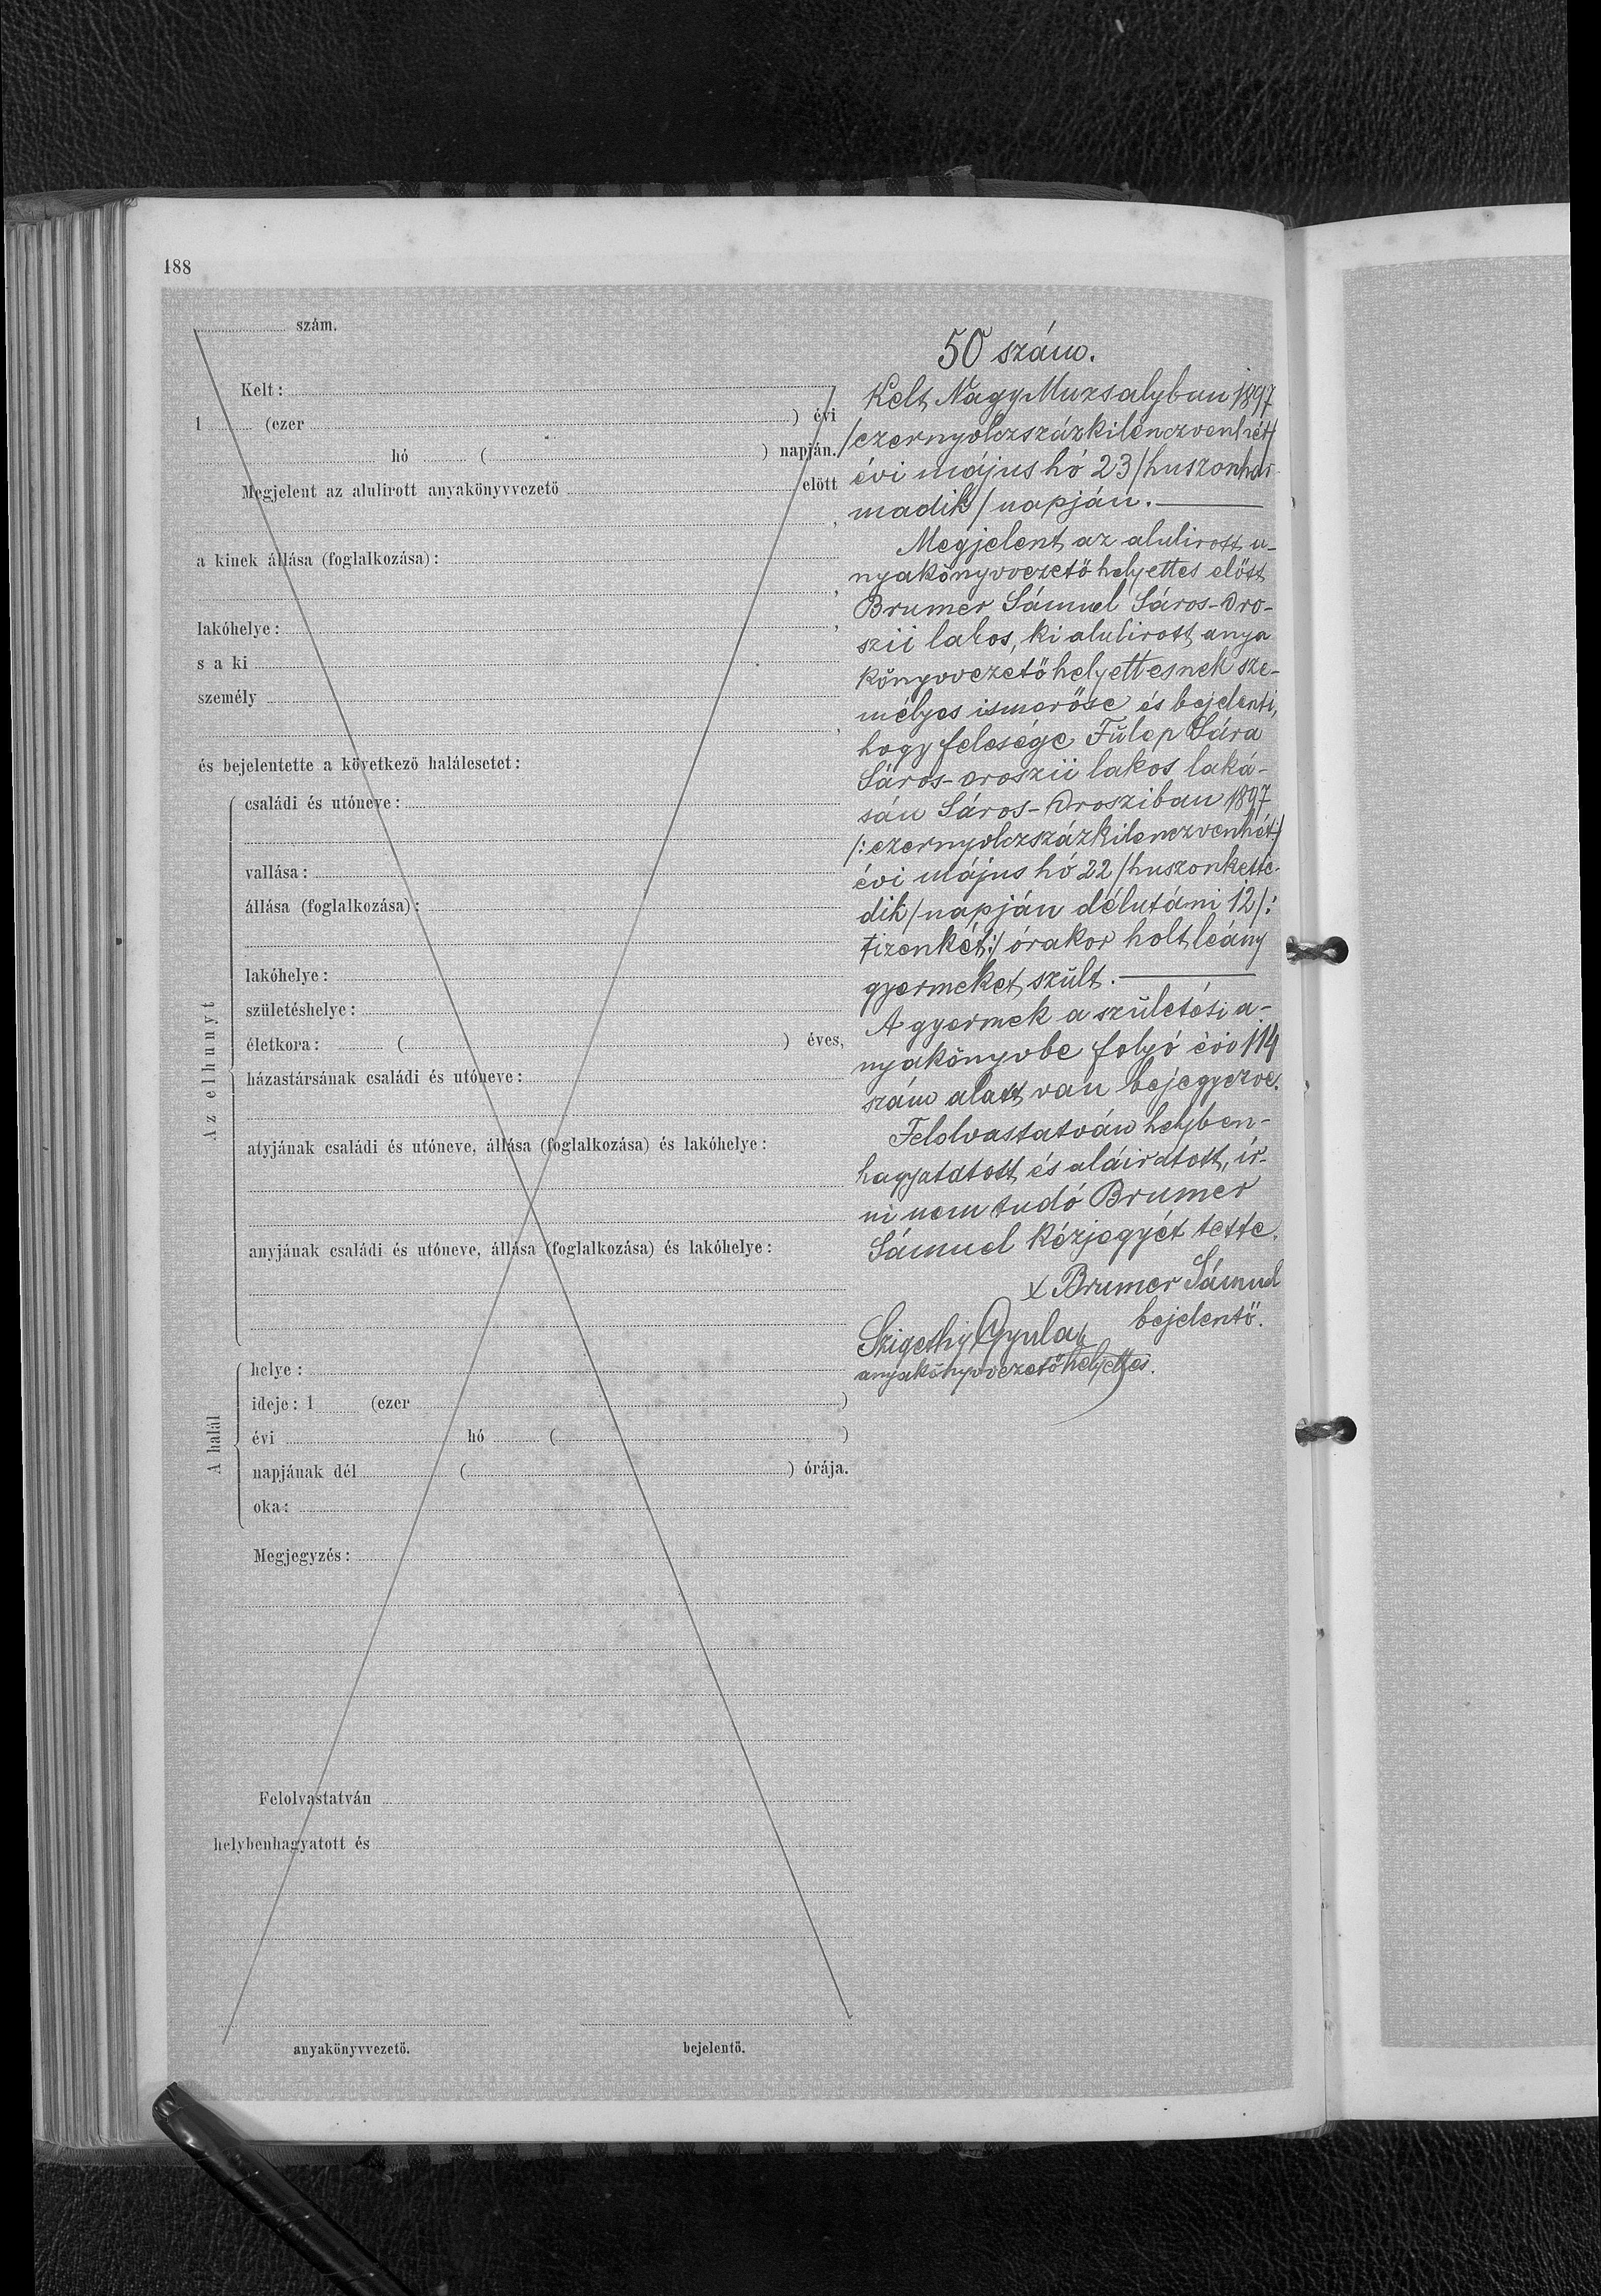 188
szám.
Kelt:
1 (ezer ) évi
hó ( ) napján.
Megjelent az alulirott anyakönyvvezető előtt
,
a kinek állása (foglalkozása):
,
lakóhelye: ,
s a ki
személy
,
és bejelentette a következő halálesetet:
Az elhunyt
családi és utóneve:
vallása:
állása (foglalkozása):
lakóhelye:
születéshelye:
életkora: ( ) éves,
házastársának családi és utóneve:
atyjának családi és utóneve, állása (foglalkozása) és lakóhelye:
anyjának családi és utóneve, állása (foglalkozása) és lakóhelye:
A halál
helye:
ideje: 1 (ezer )
évi hó ( )
napjának dél ( ) órája.
oka:
Megjegyzés:
Felolvastatván
helybenhagyatott és
anyakönyvvezető. bejelentő.
50 szám.
Kelt Nagy Muzsalyban 1897
/ezernyolczszázkilenczvenhét/
évi május hó 23 /huszonhar-
madik/ napján.
Megjelent az alulirott a-
nyakönyvvezető helyettes előtt
Brumer Sámuel Sáros-Oro-
szii lakos, ki alulirott anya
könyvvezető helyettesnek sze-
mélyes ismerőse és bejelenti,
hogy felesége Fülep Sára
Sáros-oroszii lakos laká-
sán Sáros-Orosziban 1897
/:ezernyolczszázkilenczvenhét:/
évi május hó 22 /huszonkette-
dik/ napján délutáni 12 /:
tizenkét:/ órakor holt leány
gyermeket szült.
A gyermek a születési a-
nyakönyvbe folyó évi 114
szám alatt van bejegyezve.
Felolvastatván helyben-
hagyatatott és aláiratott, ir-
ni nem tudó Brumer
Sámuel kézjegyét tette.
x Brumer Sámuel
bejelentő.
Szigethy Gyula
anyakönyvvezető helyettes.